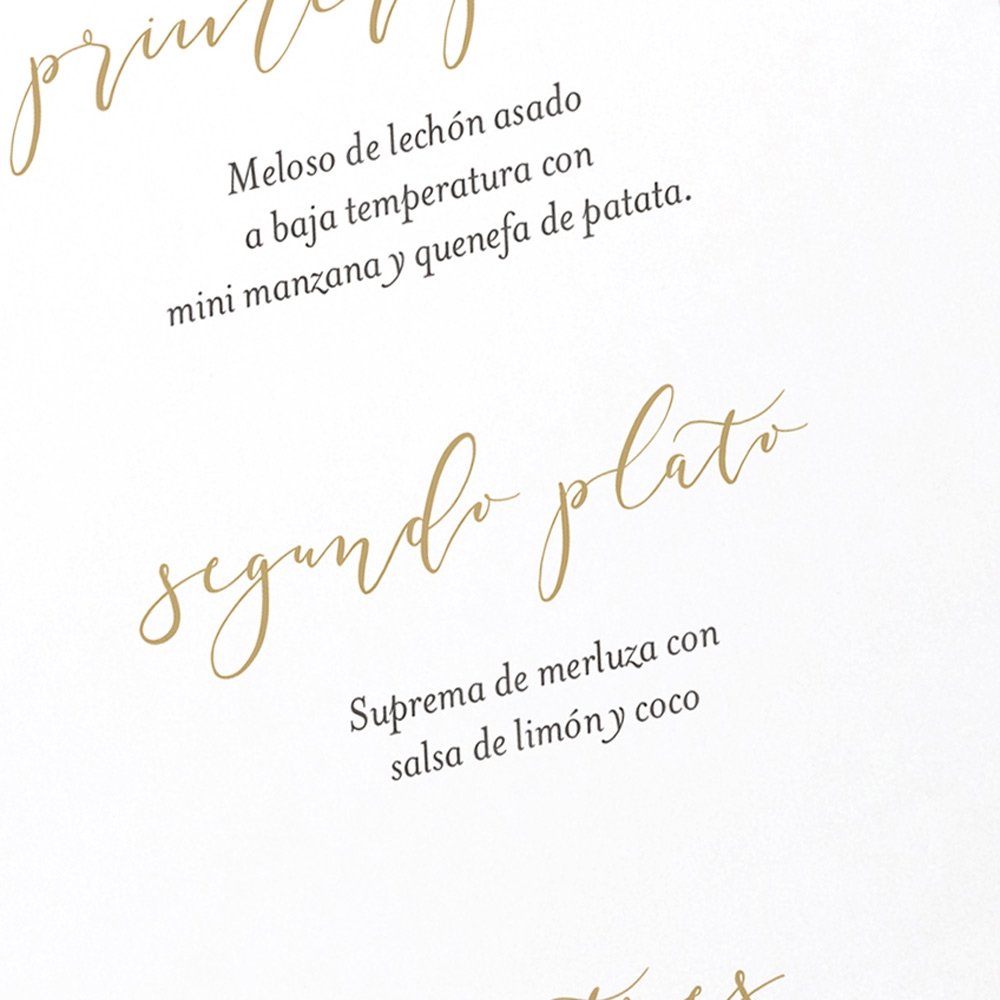 Meloso de lechón asado
a baja temperatura con
mini manzana y quenefa de patata.
segundo plato
Suprema de merluza con
salsa de limón y coco